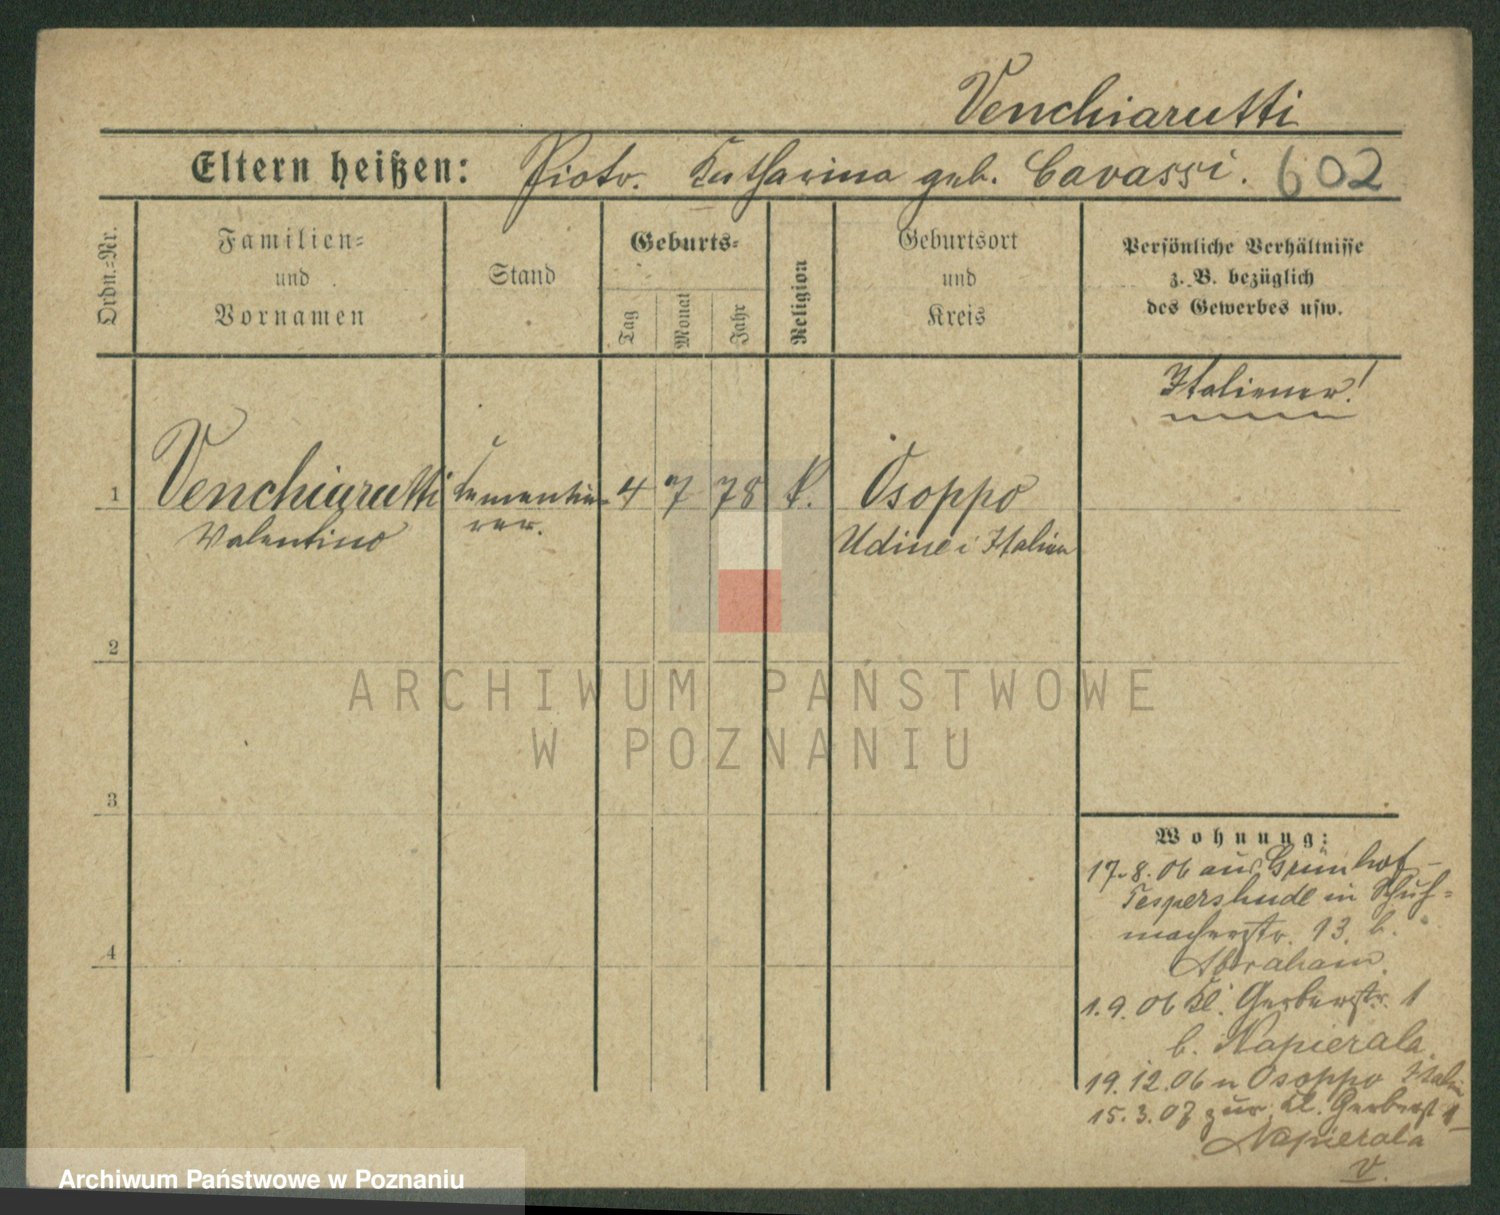 Venchiarutti
Eltern heißen: Piotr. Katharina geb. Cavassi. 602
Ordn.-Nr.
Familien-
und
Vornamen
Stand
Geburts-
Tag
Monat
Jahr
Religion
Geburtsort
und
Kreis
Persönliche Verhältnisse
z. B. bezüglich
des Gewerbes usw.
Italiener!
1 Venchiarutti 4 7 78 k. Osoppo
Valentino Udine i Italien
2
3
4
Wohnung:
17.8.06 aus Grünhof-
Tesperhude in Schuh-
macherstr. 13. b.
Abraham.
1.9.06 Kl. Gerberstr. 1
b. Napierala.
19.12.06 n Osoppo Italien
15.3.07 zur. Kl. Gerberst 1
Napierala
v.
ARCHIWUM PAŃSTWOWE
W POZNANIU
Archiwum Państwowe w Poznaniu